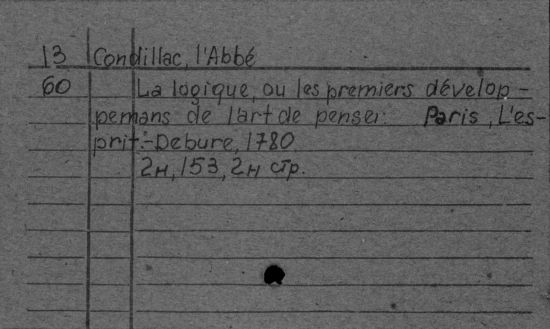 13 Condillac, l'Abbé
60 La logique, ou les premiers dévelop-
pemans de l'art de penser. Paris, L'es-
prit.-Debure, 1780
2н, 153, 2н стр.